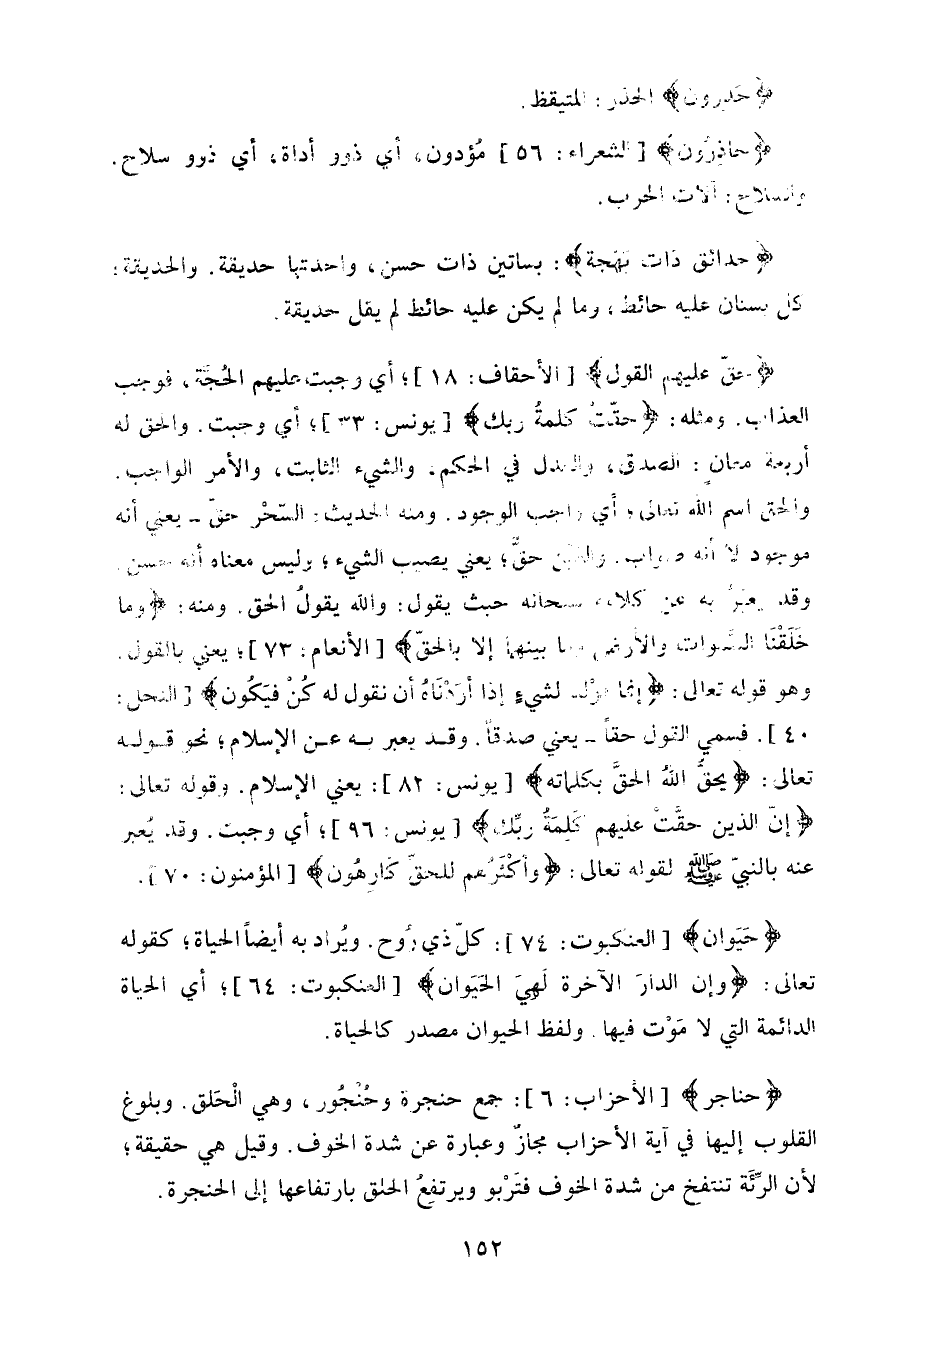 ﴿حَذِرون﴾ الحذر: المتيقظ.
﴿حاذِرُون﴾ [الشعراء: ٥٦] مُؤدون، أي ذوو أداة، أي ذوو سلاح.
والسلاح: آلات الحرب.
﴿حدائق ذات بَهْجة﴾: بساتين ذات حسن، واحدتها حديقة. والحديقة:
كل بستان عليه حائط، وما لم يكن عليه حائط لم يقل حديقة.
﴿حقّ عليهم القول﴾ [الأحقاف: ١٨]؛ أي وجبت عليهم الحُجَّة، فوجب
العذاب. ومثله: ﴿حقّتْ كلمةُ ربك﴾ [يونس: ٣٣]؛ أي وجبت. والحق له
أربعة معان: الصدق، والعدل في الحكم، والشيء الثابت، والأمر الواجب.
والحق اسم الله تعالى؛ أي واجب الوجود. ومنه الحديث: السّحْر حقّ ـ يعني أنه
موجود لا أنه صواب. والعَيْن حقٌّ؛ يعني يصيب الشيء؛ وليس معناه أنه حسن.
وقد يعبّرُ به عن كلامه سبحانه حيث يقول: والله يقولُ الحق. ومنه: ﴿وما
خَلَقْنَا السَّموات والأرض وما بينهما إلا بالحَقّ﴾ [الأنعام: ٧٣]؛ يعني بالقول.
وهو قوله تعالى: ﴿إنما قَوْلُنا لشيءٍ إذا أرَدْنَاهُ أن نقول له كُنْ فيَكُون﴾ [النحل:
٤٠]. فسمي القول حقاً ـ يعني صدقاً. وقد يعبر به عن الإسلام؛ نحو قوله
تعالى: ﴿يحقُّ اللهُ الحقَّ بكلماته﴾ [يونس: ٨٢]: يعني الإسلام. وقوله تعالى:
﴿إنّ الذين حقَّتْ عليهم كَلِمَةُ ربِّك﴾ [يونس: ٩٦]؛ أي وجبت. وقد يُعبر
عنه بالنبيّ ﷺ لقوله تعالى: ﴿وأكْثَرُهم للحقّ كَارِهُون﴾ [المؤمنون: ٧٠].
﴿حَيَوان﴾ [العنكبوت: ٧٤]: كلّ ذي رُوح. ويُراد به أيضاً الحياة؛ كقوله
تعالى: ﴿وإن الدارَ الآخرة لَهِيَ الحَيَوان﴾ [العنكبوت: ٦٤]؛ أي الحياة
الدائمة التي لا مَوْت فيها. ولفظ الحيوان مصدر كالحياة.
﴿حناجر﴾ [الأحزاب: ٦]: جمع حنجرة وحُنْجُور، وهي الْحَلق. وبلوغ
القلوب إليها في آية الأحزاب مجازٌ وعبارة عن شدة الخوف. وقيل هي حقيقة؛
لأن الرِّئَة تنتفخ من شدة الخوف فتَرْبو ويرتفعُ الحلق بارتفاعها إلى الحنجرة.
١٥٢